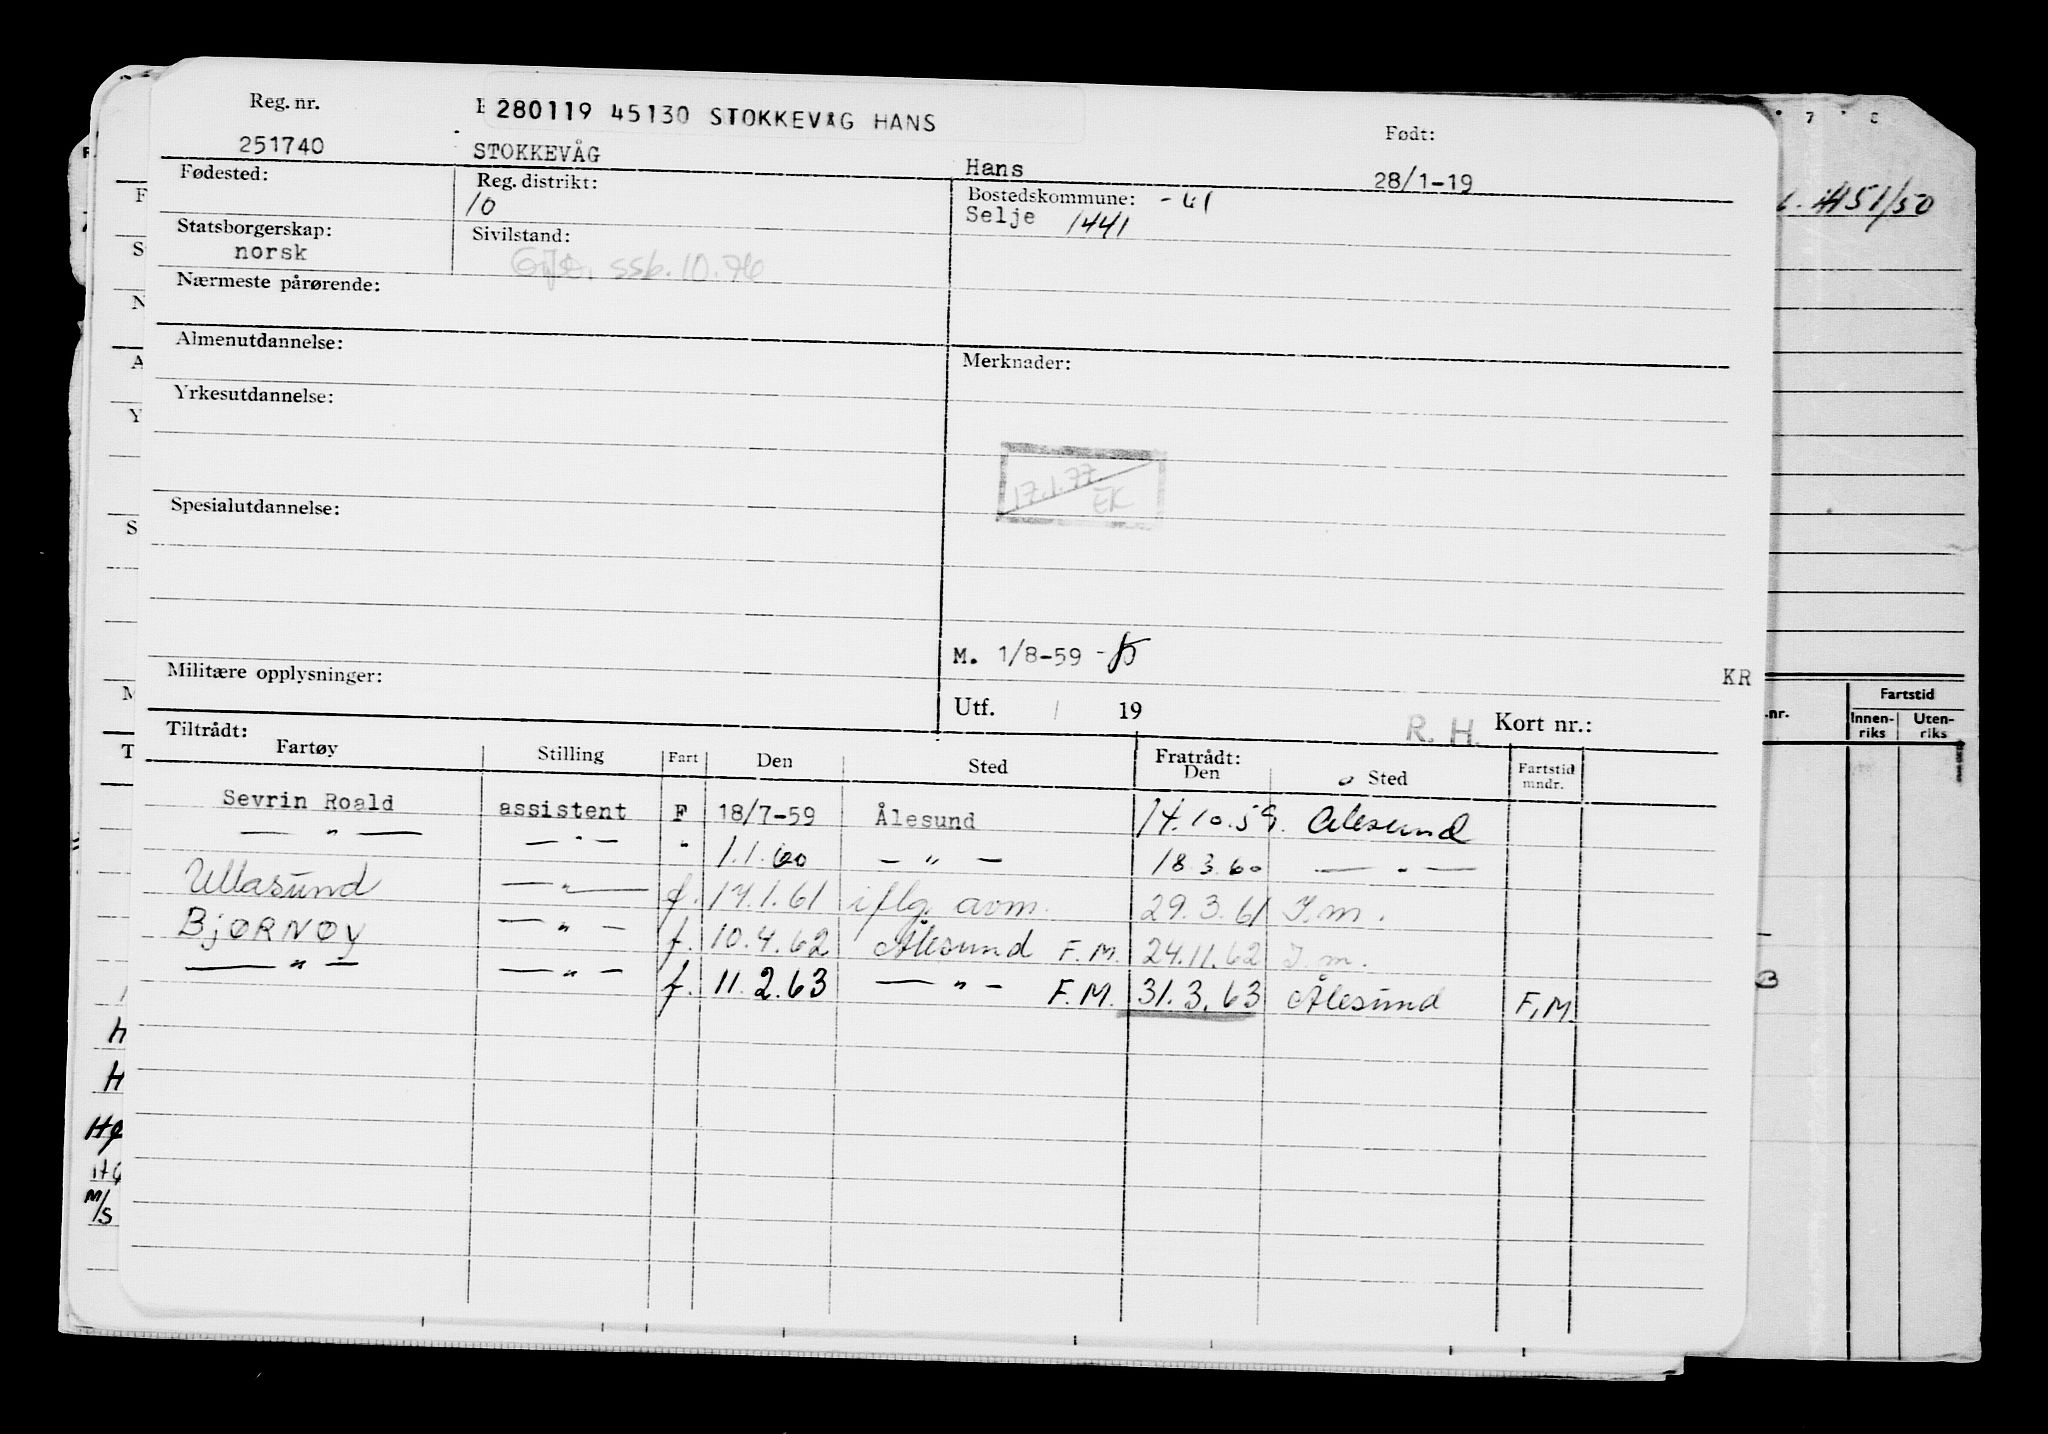 Reg. nr. 280119 45130 STOKKEVÅG HANS Født:
251740 STOKKEVÅG Hans 28/1-19
Fødested: Reg. distrikt: Bostedskommune: -61
10 Selje 1441
Statsborgerskap: Sivilstand:
norsk Gift. ssb. 10.76
Nærmeste pårørende:
Almenutdannelse: Merknader:
Yrkesutdannelse:
17.1.77. EK
Spesialutdannelse:
M. 1/8-59
Militære opplysninger: KR
Utf. / 19 R. H. Kort nr.:
Tiltrådt: Fratrådt:
Fartøy Stilling Fart Den Sted Den Sted Fartstid mndr.
Sevrin Roald assistent F 18/7-59 Ålesund 14.10.59. Ålesund
— " — — " — " 1.1.60 — " — 18.3.60 — " —
Ullasund — " — f. 17.1.61 iflg. avm. 29.3.61 I.m.
BjØRNØy — " — f. 10.4.62 Ålesund F.M. 24.11.62 I.m.
— " — — " — f. 11.2.63 — " — F.M. 31.3.63 Ålesund F.M.
7 8
51/50
.nr. Fartstid
Innen-riks Uten-riks
H
H
M/S